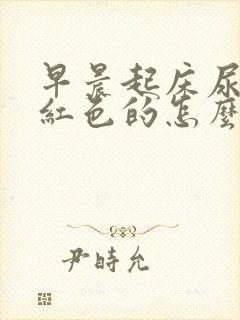 早晨起床尿
紅色的怎麼
尹時允